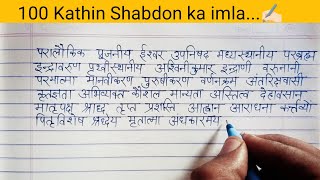 100 Kathin Shabdon ka imla...✍🏻
पारलौकिक पूजनीय ईश्वर उपनिषद मध्यस्थानीय परब्रह्म
इन्द्रावरुण पृथ्वीस्थानीय अश्विनीकुमार इन्द्राणी वरुनानी
परमात्मा मानवीकरण पुरुषीकरण वर्णनक्रम अंतरिक्षवासी
कृतज्ञता अभिव्यक्त कौशल मान्यता अस्तित्व देहावसान
मातृपक्ष श्राद्ध तृप्त प्रशस्ति आह्वान आराधना कर्त्तव्यों
पितृविशेष श्रद्धेय मृतात्मा अंधकारमय